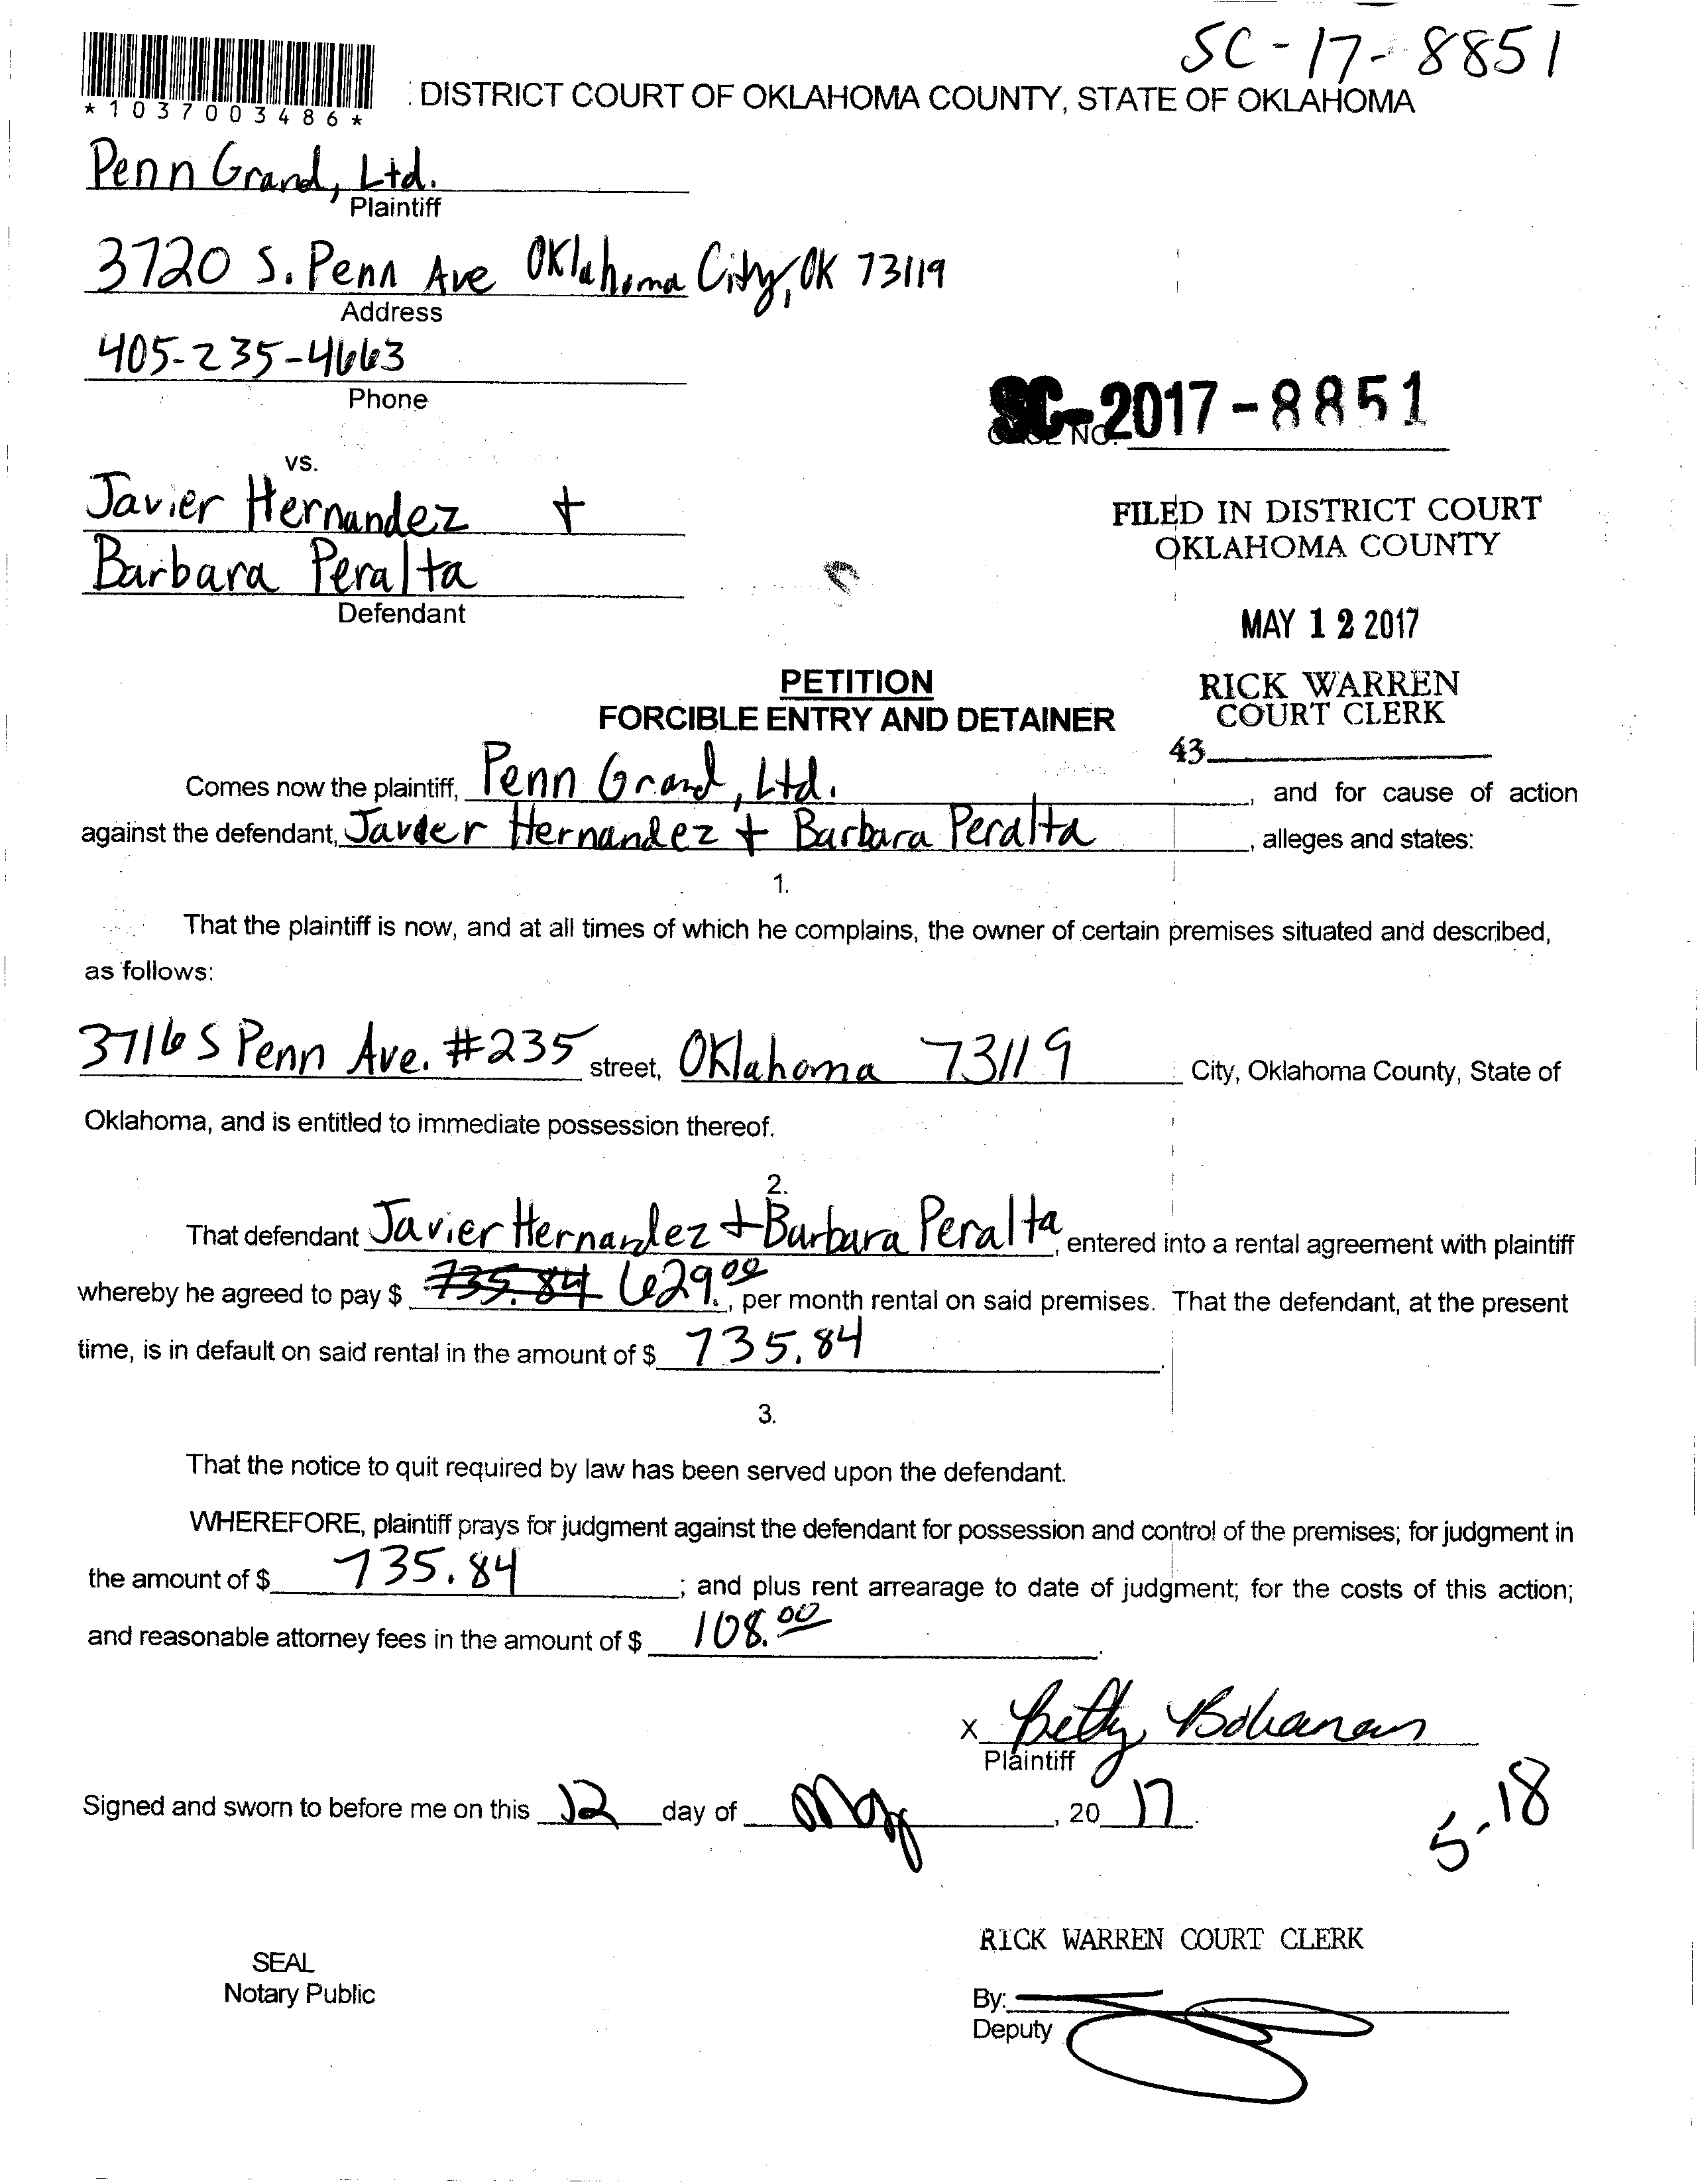 SC-17-8851
*1037003486*
DISTRICT COURT OF OKLAHOMA COUNTY, STATE OF OKLAHOMA
Penn Grand, Ltd.
Plaintiff
3720 S. Penn Ave Oklahoma City, OK 73119
Address
405-235-4663
Phone
SC-2017-8851
CASE NO.
vs.
Javier Hernandez +
Barbara Peralta
Defendant
FILED IN DISTRICT COURT
OKLAHOMA COUNTY
MAY 12 2017
RICK WARREN
COURT CLERK
43
PETITION
FORCIBLE ENTRY AND DETAINER
Comes now the plaintiff, Penn Grand, Ltd., and for cause of action
against the defendant, Javier Hernandez + Barbara Peralta, alleges and states:
1.
That the plaintiff is now, and at all times of which he complains, the owner of certain premises situated and described,
as follows:
3716 S Penn Ave. #235 street, Oklahoma 73119 City, Oklahoma County, State of
Oklahoma, and is entitled to immediate possession thereof.
2.
That defendant Javier Hernandez + Barbara Peralta, entered into a rental agreement with plaintiff
whereby he agreed to pay $ 735.84 629.00, per month rental on said premises. That the defendant, at the present
time, is in default on said rental in the amount of $ 735.84.
3.
That the notice to quit required by law has been served upon the defendant.
WHEREFORE, plaintiff prays for judgment against the defendant for possession and control of the premises; for judgment in
the amount of $ 735.84; and plus rent arrearage to date of judgment; for the costs of this action;
and reasonable attorney fees in the amount of $ 108.00.
x Betty Bohanan
Plaintiff
Signed and sworn to before me on this 12 day of May, 2017.
5-18
RICK WARREN COURT CLERK
SEAL
Notary Public
By:
Deputy